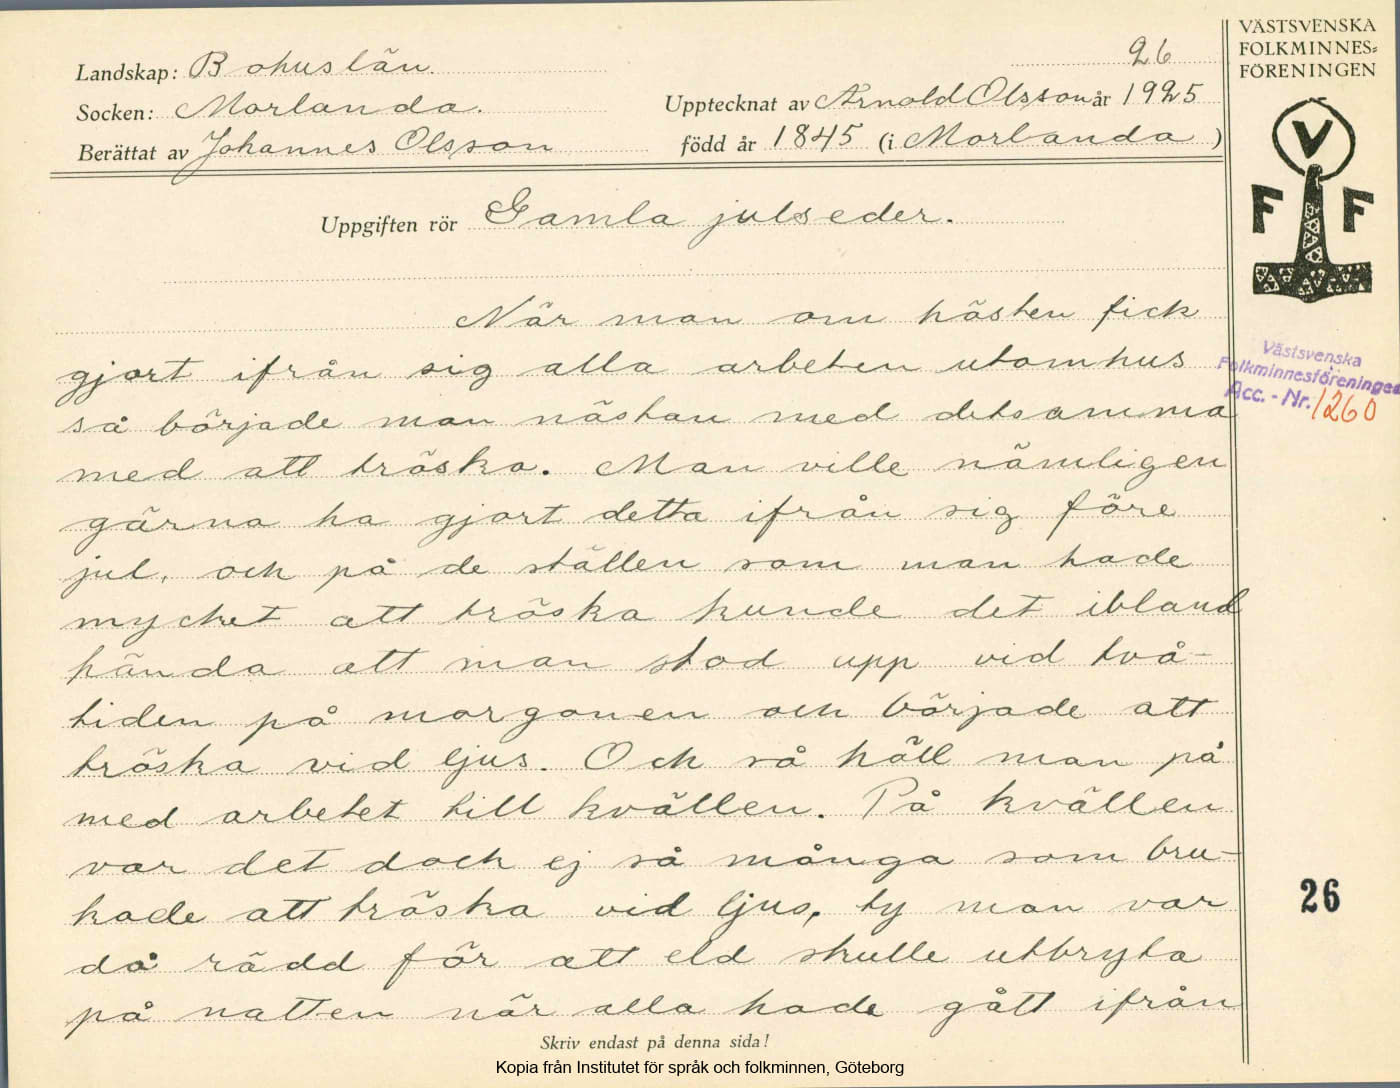 VÄSTSVENSKA
FOLKMINNES=
FÖRENINGEN
26
Landskap: Bohuslän.
Socken: Morlanda.
Upptecknat av Arnold Olsson år 1925
Berättat av Johannes Olsson
född år 1845 (i Morlanda)
V
F F
Uppgiften rör Gamla julseder.
När man om hösten fick
gjort ifrån sig alla arbeten utomhus
så började man nästan med detsamma
med att tröska. Man ville nämligen
gärna ha gjort detta ifrån sig före
jul, och på de ställen som man hade
mycket att tröska kunde det ibland
hända att man stod upp vid två-
tiden på morgonen och började att
tröska vid ljus. Och så höll man på
med arbetet till kvällen. På kvällen
var det dock ej så många som bru-
kade att tröska vid ljus, ty man var
då rädd för att eld skulle utbryta
på natten när alla hade gått ifrån
Västsvenska
Folkminnesföreningen
Acc. - Nr. 1260
26
Skriv endast på denna sida!
Kopia från Institutet för språk och folkminnen, Göteborg